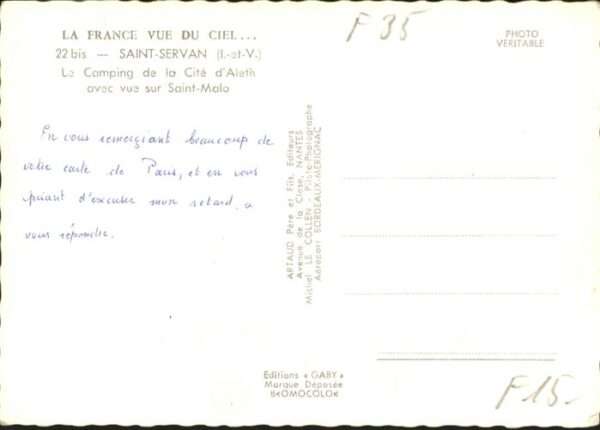 LA FRANCE VUE DU CIEL...
22 bis — SAINT-SERVAN (I.-et-V.)
Le Camping de la Cité d'Aleth
avec vue sur Saint-Malo
En vous remerciant beaucoup de
votre carte de Paris, et en vous
priant d'excuser mon retard, à
vous répondre.
F 35
PHOTO
VERITABLE
ARTAUD Père et Fils, Editeurs
Avenue de la Close, NANTES
Michel LE COLLEN - Pilote-Photographe
Aéroport BORDEAUX-MERIGNAC
Editions « GABY »
Marque Déposée
F 15-